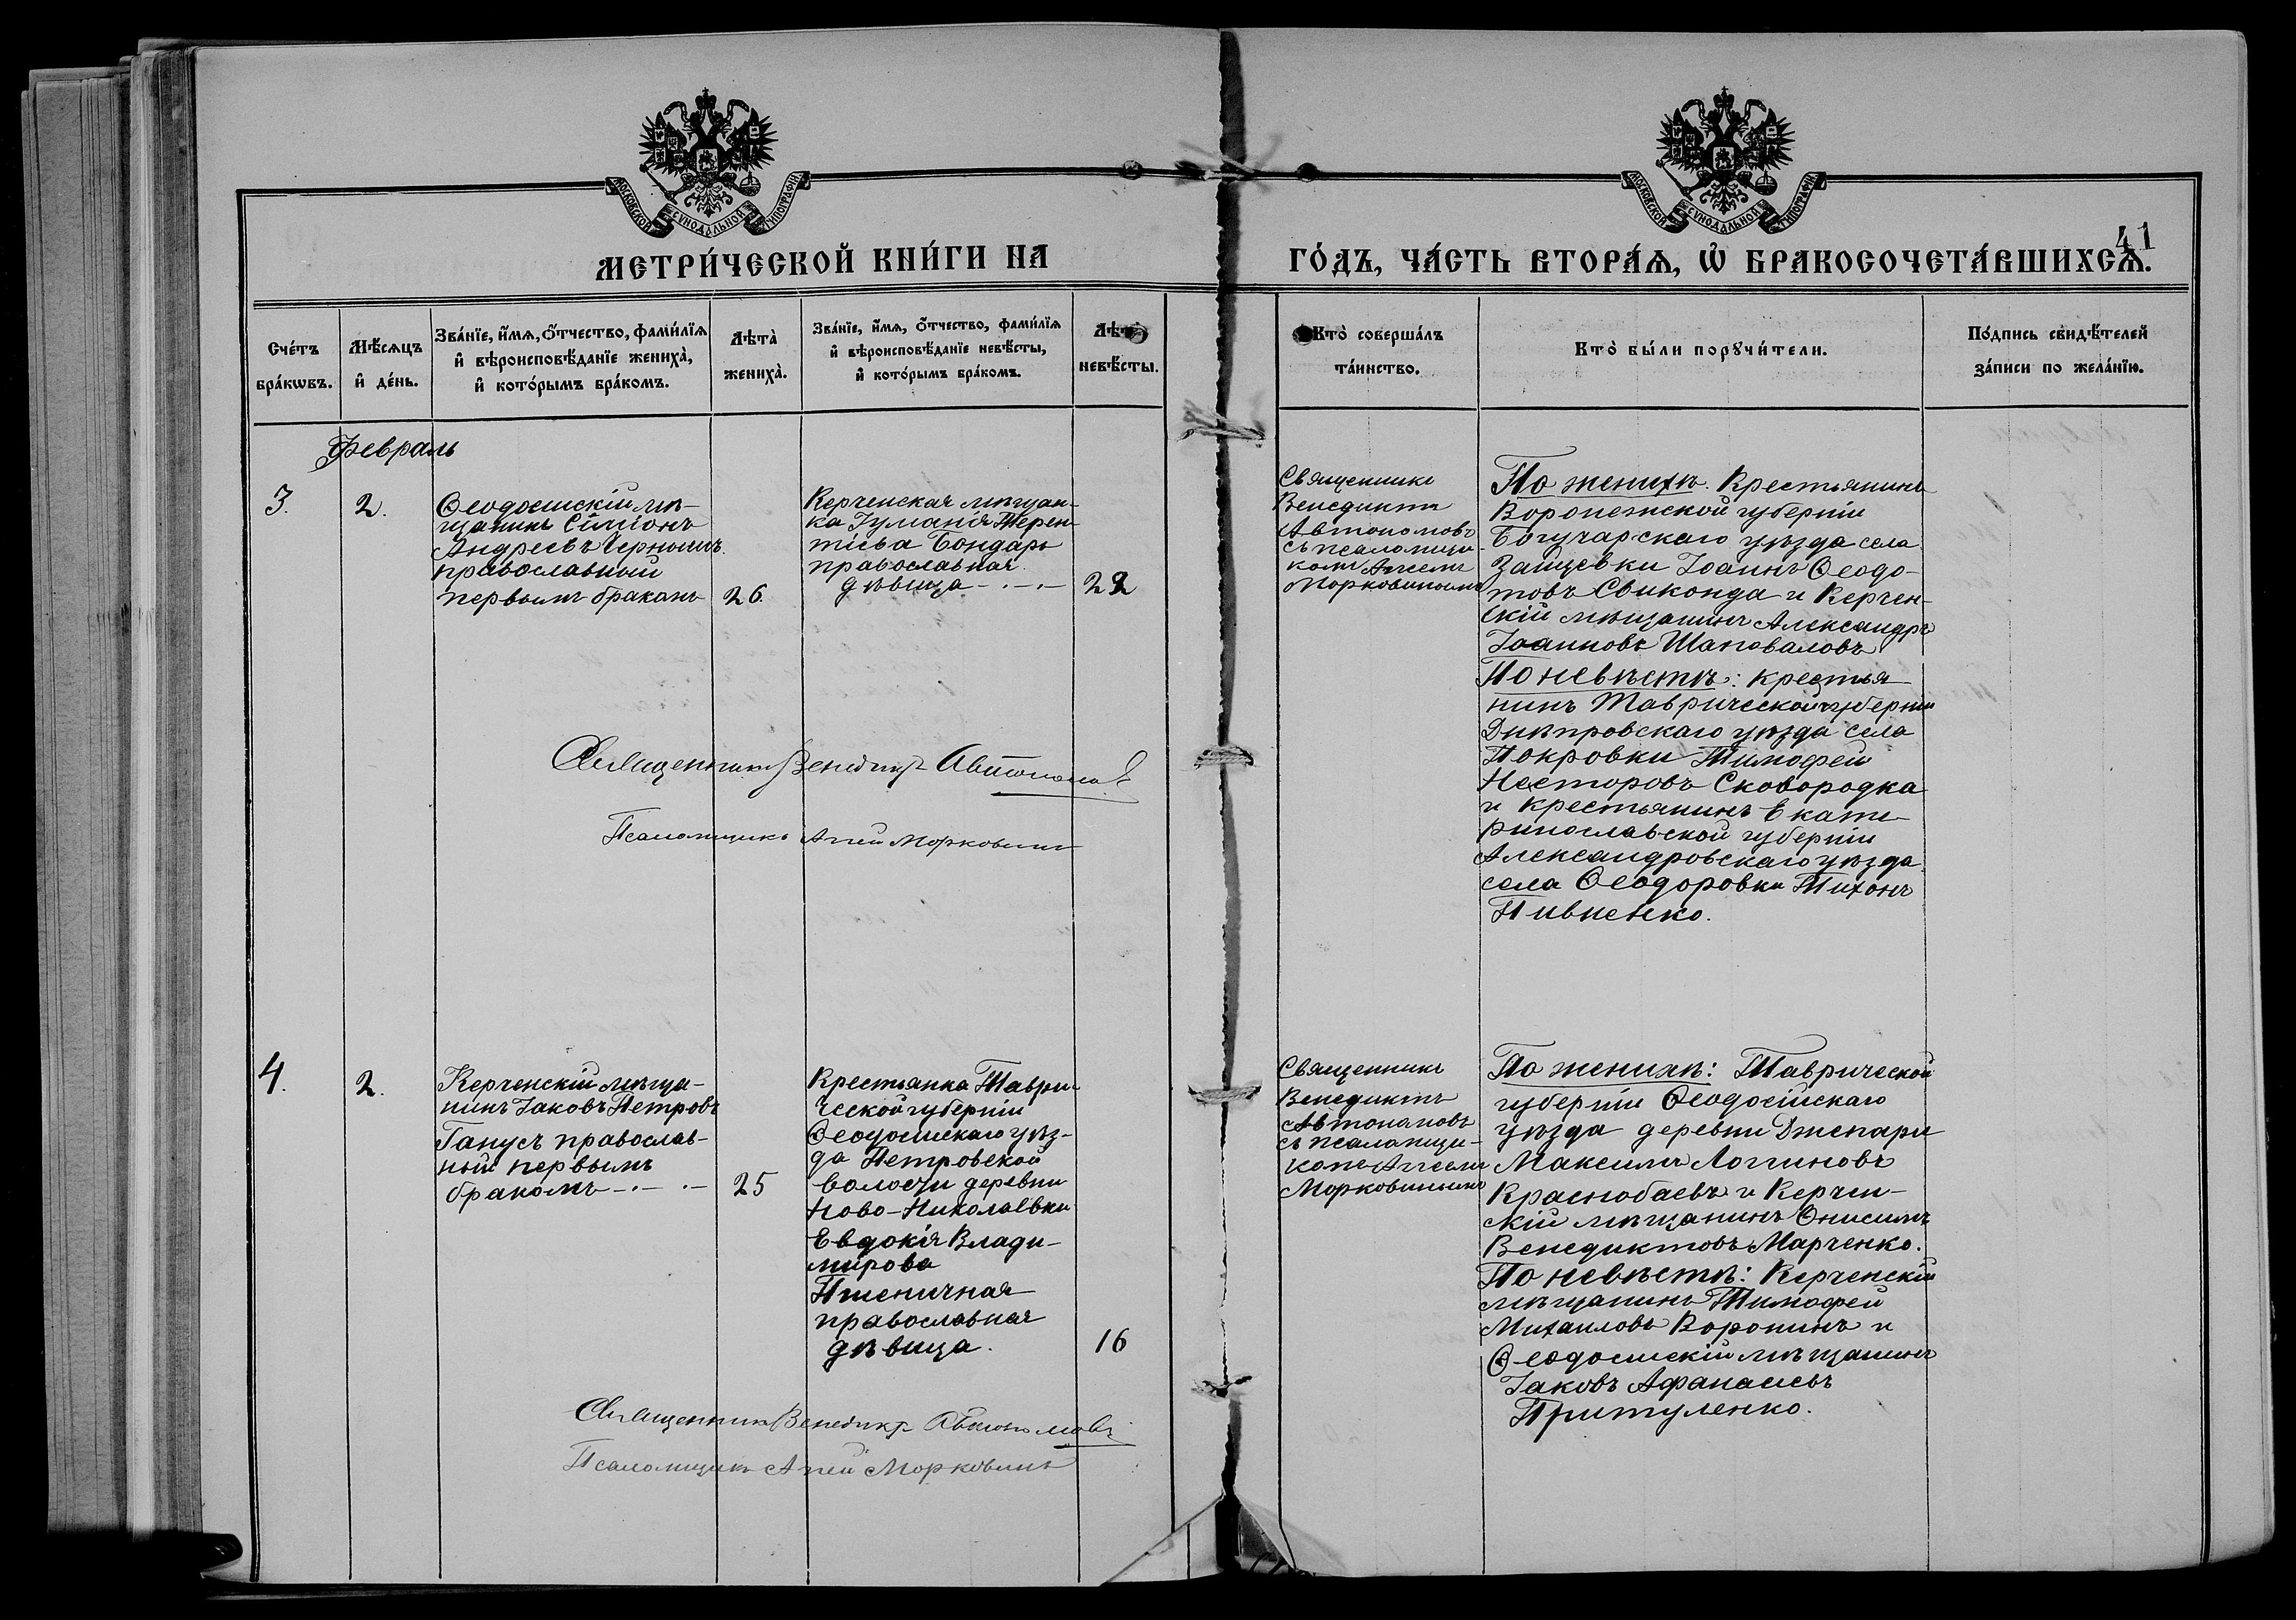 МОСКОВСКОЙ СѴНОДАЛЬНОЙ ТИПОГРАФІИ
МОСКОВСКОЙ СѴНОДАЛЬНОЙ ТИПОГРАФІИ
41
МЕТРИ́ЧЕСКОЙ КНИ́ГИ НА ГО́ДЪ, ЧА́СТЬ ВТОРА́Ѧ, Ѡ҆ БРАКОСОЧЕТА́ВШИХСѦ.
Сче́тъ
бра́кѡвъ.
Мѣ́сѧцъ
и҆ де́нь.
Зва́нїе, и҆́мѧ, ѻ҆́тчество, фами́лїѧ
и҆ вѣроисповѣ́данїе жениха̀,
и҆ кото́рымъ бра́комъ.
Лѣта̀
жениха̀.
Зва́нїе, и҆́мѧ, ѻ҆́тчество, фами́лїѧ
и҆ вѣроисповѣ́данїе невѣ́сты,
и҆ кото́рымъ бра́комъ.
Лѣта̀
невѣ́сты.
Кто̀ соверша́лъ
та́инство.
Кто̀ бы́ли порꙋчи́тели.
По́дпись свидѣ́телей
за́писи по жела́нїю.
Февраль
3.
2.
Ѳеодосійскій мѣ-
щанинъ Сімеонъ
Андреевъ
православный
первымъ бракомъ
26.
Керченская мѣщан-
ка Іуліанія Терен-
тіева Бондарь
православная
дѣвица
22
Священникъ
Венедиктъ
Автономовъ
съ псаломщи-
комъ Аггеемъ
Морковинымъ
По женихѣ. Крестьянинъ
Воронежской губерніи
Богучарскаго уѣзда села
Зайцевки Іоаннъ Ѳеодо-
товъ и Керчен-
скій мѣщанинъ Александръ
Іоанновъ Шаповаловъ
По невѣстѣ: крестья
нинъ Таврической губерніи
Днѣпровскаго уѣзда села
Покровки Тимофей
Несторовъ Сковородка
и крестьянинъ Екате-
ринославской губерніи
Александровскаго уѣзда
села Ѳеодоровки Тихонъ
Пивненко.
Священникъ Венедиктъ Автономовъ
Псаломщикъ Аггей Морковинъ
4.
2.
Керченскій мѣща-
нинъ Іаковъ Петровъ
Ганусъ православ-
ный первымъ
бракомъ
25
Крестьянка Таври-
ческой губерніи
Ѳеодосійскаго уѣз-
да Петровской
волости деревни
Ново-Николаевки
Евдокія Влади-
мирова
Пшеничная
православная
дѣвица.
16
Священникъ
Венедиктъ
Автономовъ
съ псаломщи-
комъ Аггеемъ
Морковинымъ
По женихѣ: Таврической
губерніи Ѳеодосійскаго
уѣзда деревни Джепари
Максимъ Логгиновъ
Краснобаевъ и Керчен-
скій мѣщанинъ Онисимъ
Венедиктовъ Марченко.
По невѣстѣ: Керченскій
мѣщанинъ Тимофей
Михаиловъ Воронинъ и
Ѳеодосійскій мѣщанинъ
Іаковъ Афанасьевъ
Притуленко.
Священникъ Венедиктъ Автономовъ
Псаломщикъ Аггей Морковинъ